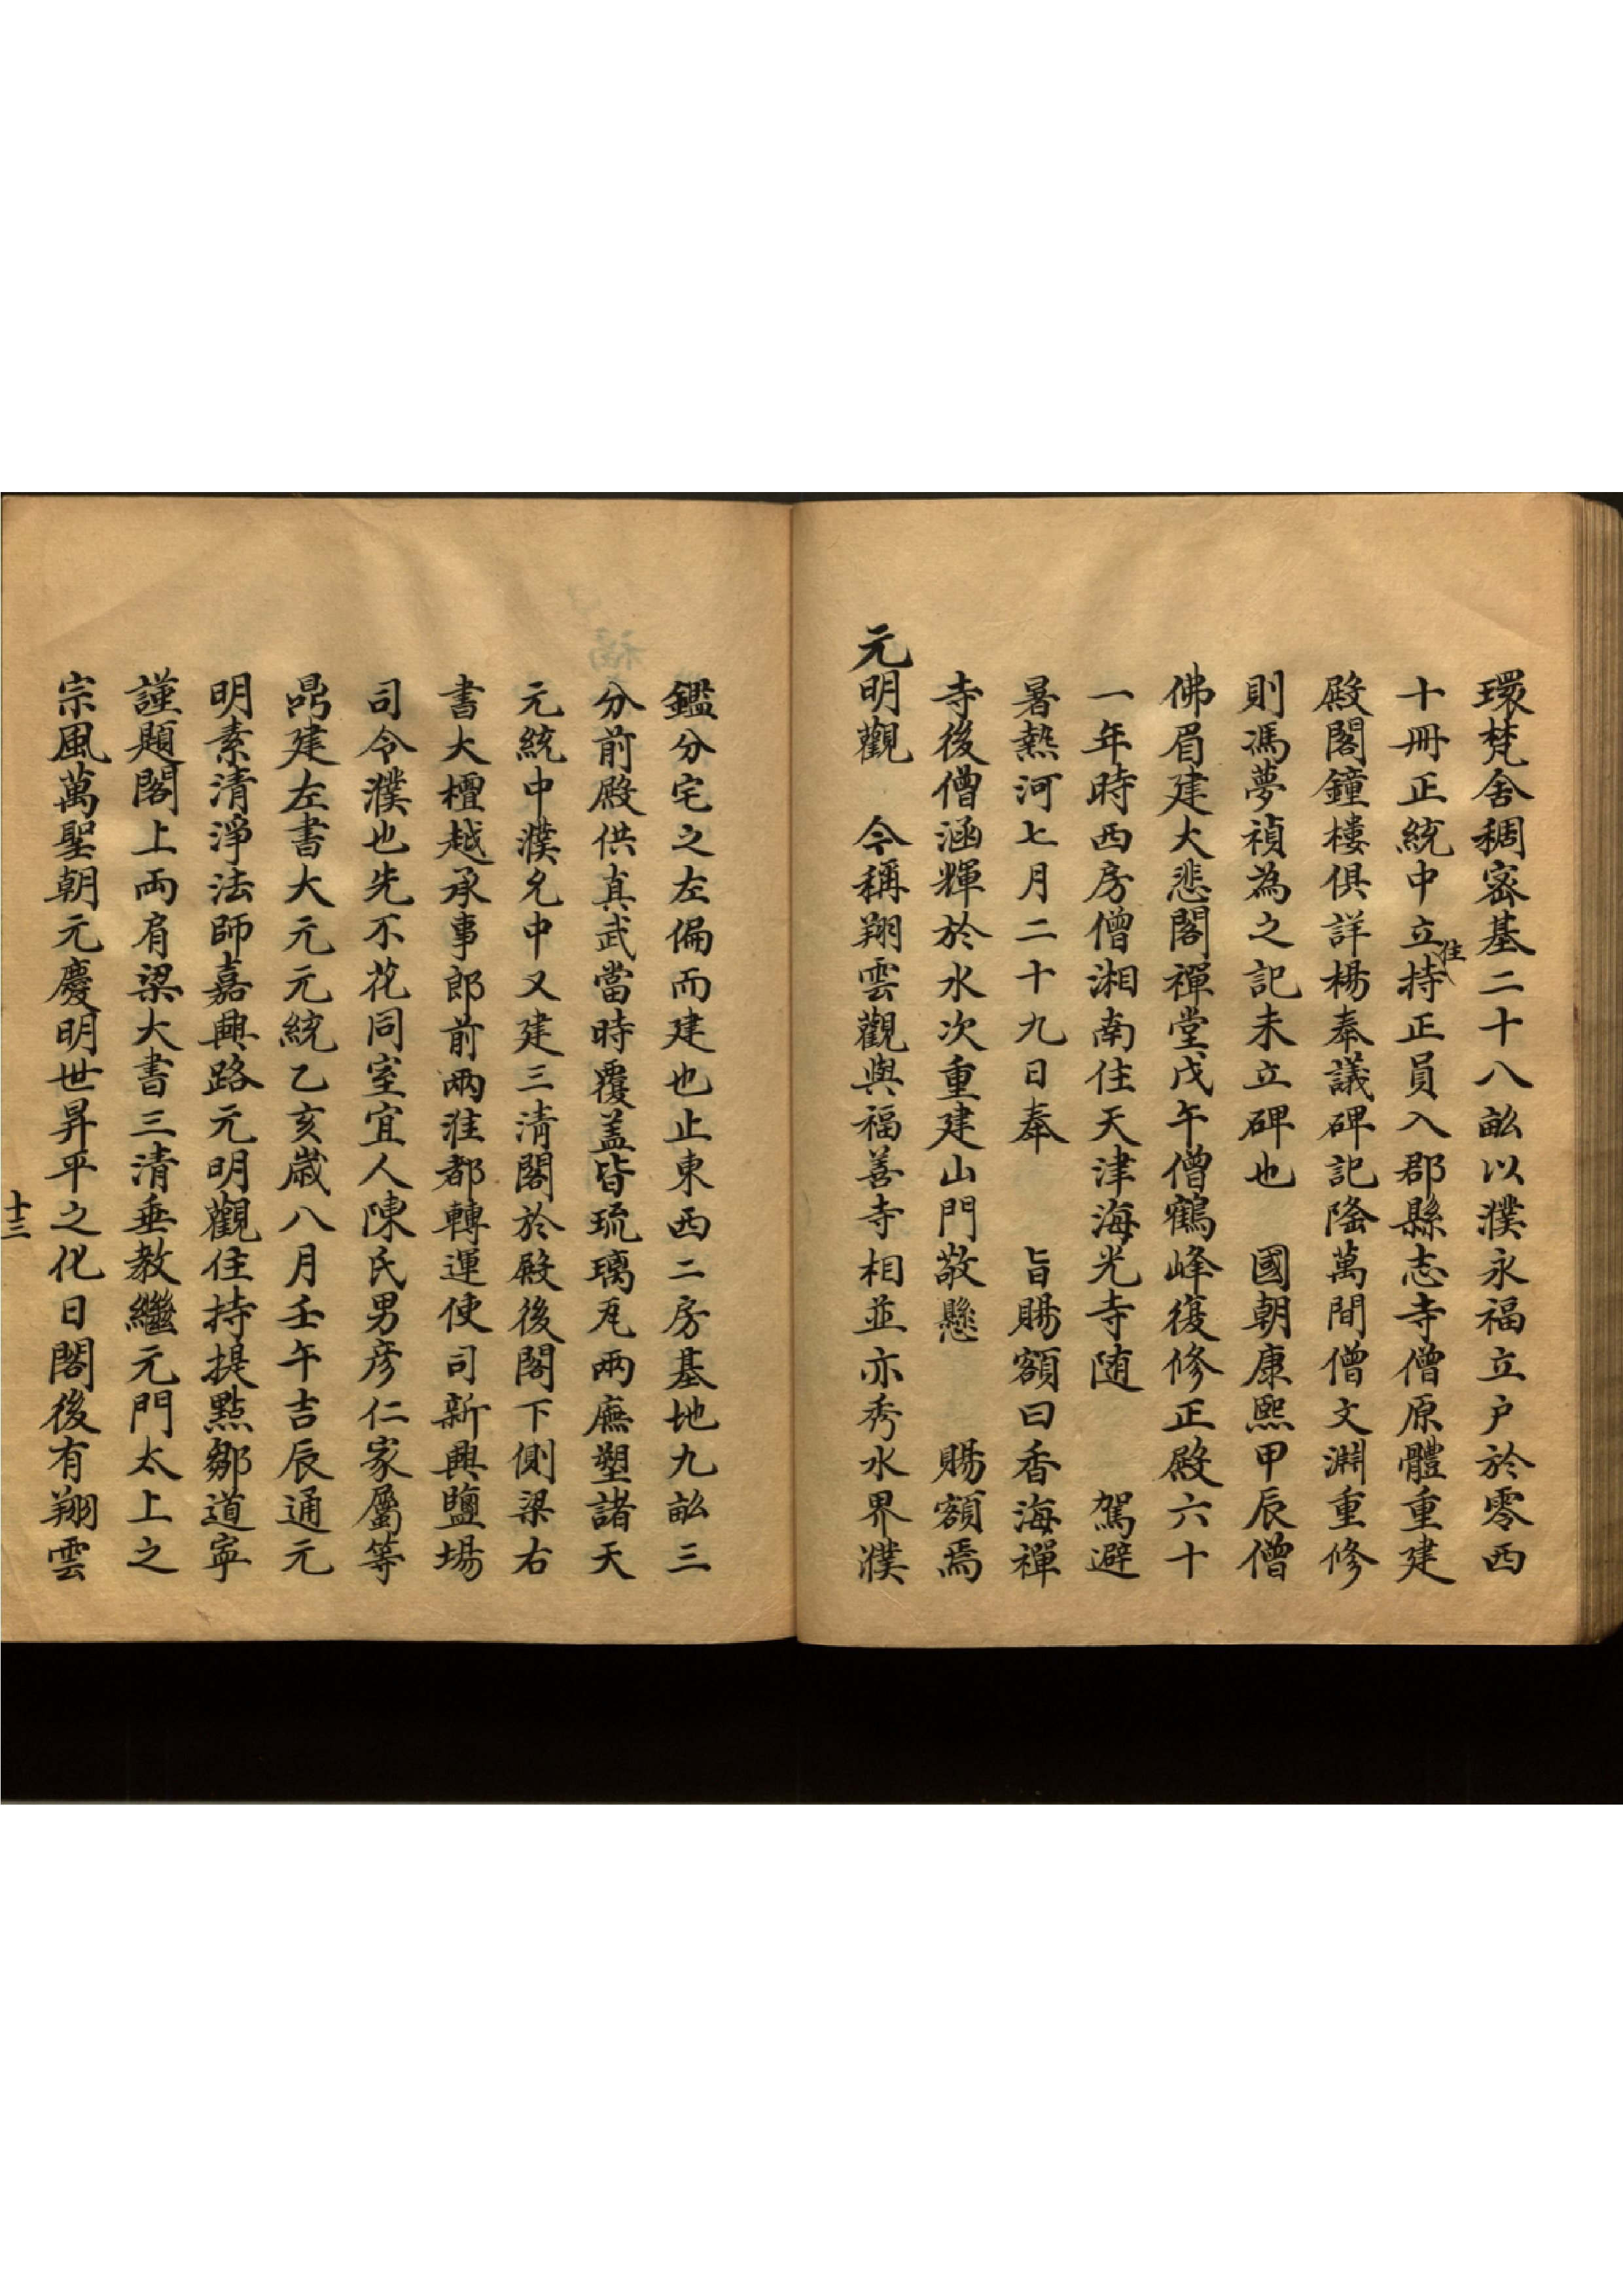 環梵舍稠密基二十八畝以濮永福立户於零西
十冊正統中立住持正員入郡縣志寺僧原體重建
殿閣鐘樓俱詳楊奉議碑記隆萬間僧文淵重修
則馮夢禎為之記未立碑也　國朝康熙甲辰僧
佛眉建大悲閣禪堂戊午僧鶴峰復修正殿六十
一年時西房僧湘南住天津海光寺随　　駕避
暑熱河七月二十九日奉　　旨賜額曰香海禪
寺後僧涵輝於水次重建山門敬懸　　賜額焉
元明觀　今稱翔雲觀與福善寺相並亦秀水界濮
鑑分宅之左偏而建也止東西二房基地九畝三
分前殿供真武當時覆盖皆琉璃瓦兩廡塑諸天
元統中濮允中又建三清閣於殿後閣下側梁右
書大檀越承事郎前兩淮都轉運使司新興鹽場
司令濮也先不花同室宜人陳氏男彦仁家屬等
鼎建左書大元元統乙亥歲八月壬午吉辰通元
明素清淨法師嘉興路元明觀住持提點鄒道寧
謹題閣上両肩梁大書三清垂教繼元門太上之
宗風萬聖朝元慶明世昇平之化日閣後有翔雲
十三